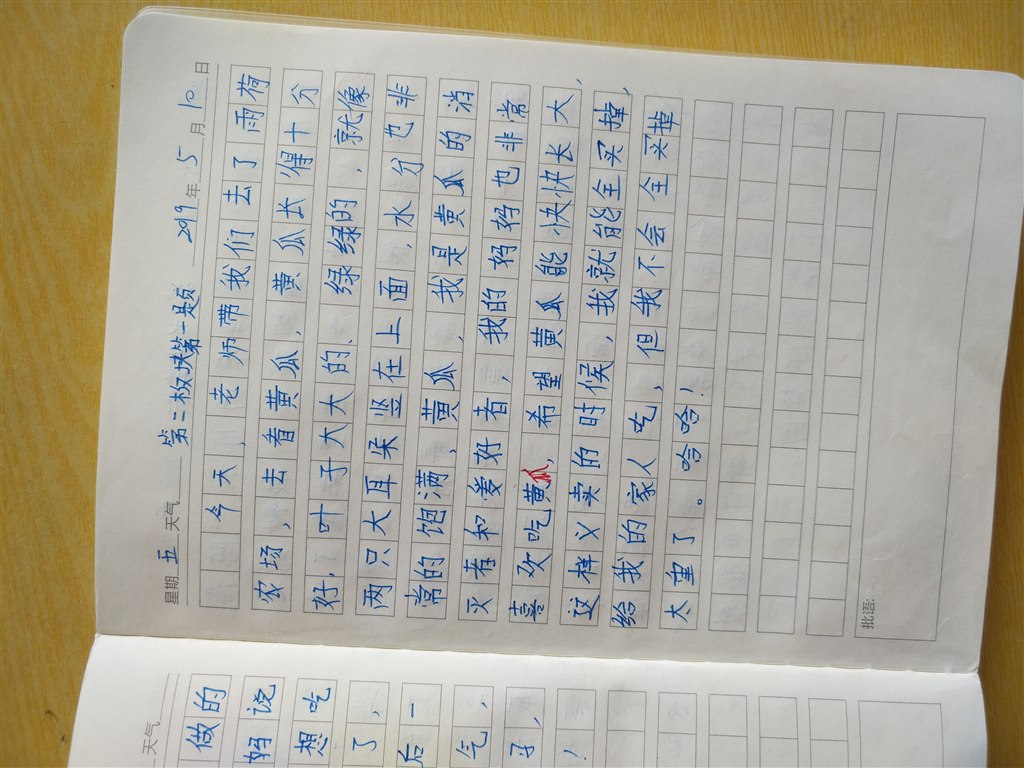 星期 五 天气 第二板块第一题 2019年5月10日
今天,老师带我们去了雨荷
农场,去看黄瓜,黄瓜长得十分
好,叶子大大的、绿绿的,就像
两只大耳朵竖在上面,水分也非
常的饱满,黄瓜,我是黄瓜的消
灭者和爱好者,我的妈妈也非常
喜欢吃黄瓜,希望黄瓜能快快长大,
这样义卖的时候,我就能全买掉,
给我的家人吃,但我不会全买掉
太重了。哈哈!
批语:
天气
做的
妈说
想吃
了,
后一
气,
子,
!